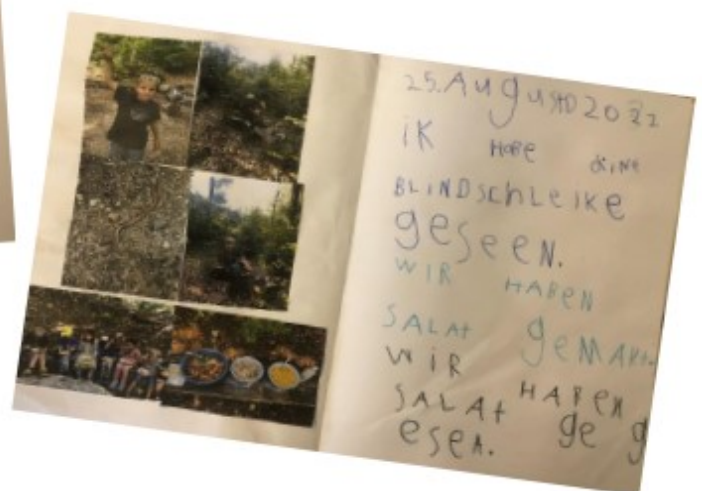 25. AugusTO 2022
iK HABE EINE
BLiNDSchLeiKe
geseen.
WiR HABEN
SALAt geMAKt.
WiR HABEN
SALAt ge g
esen.